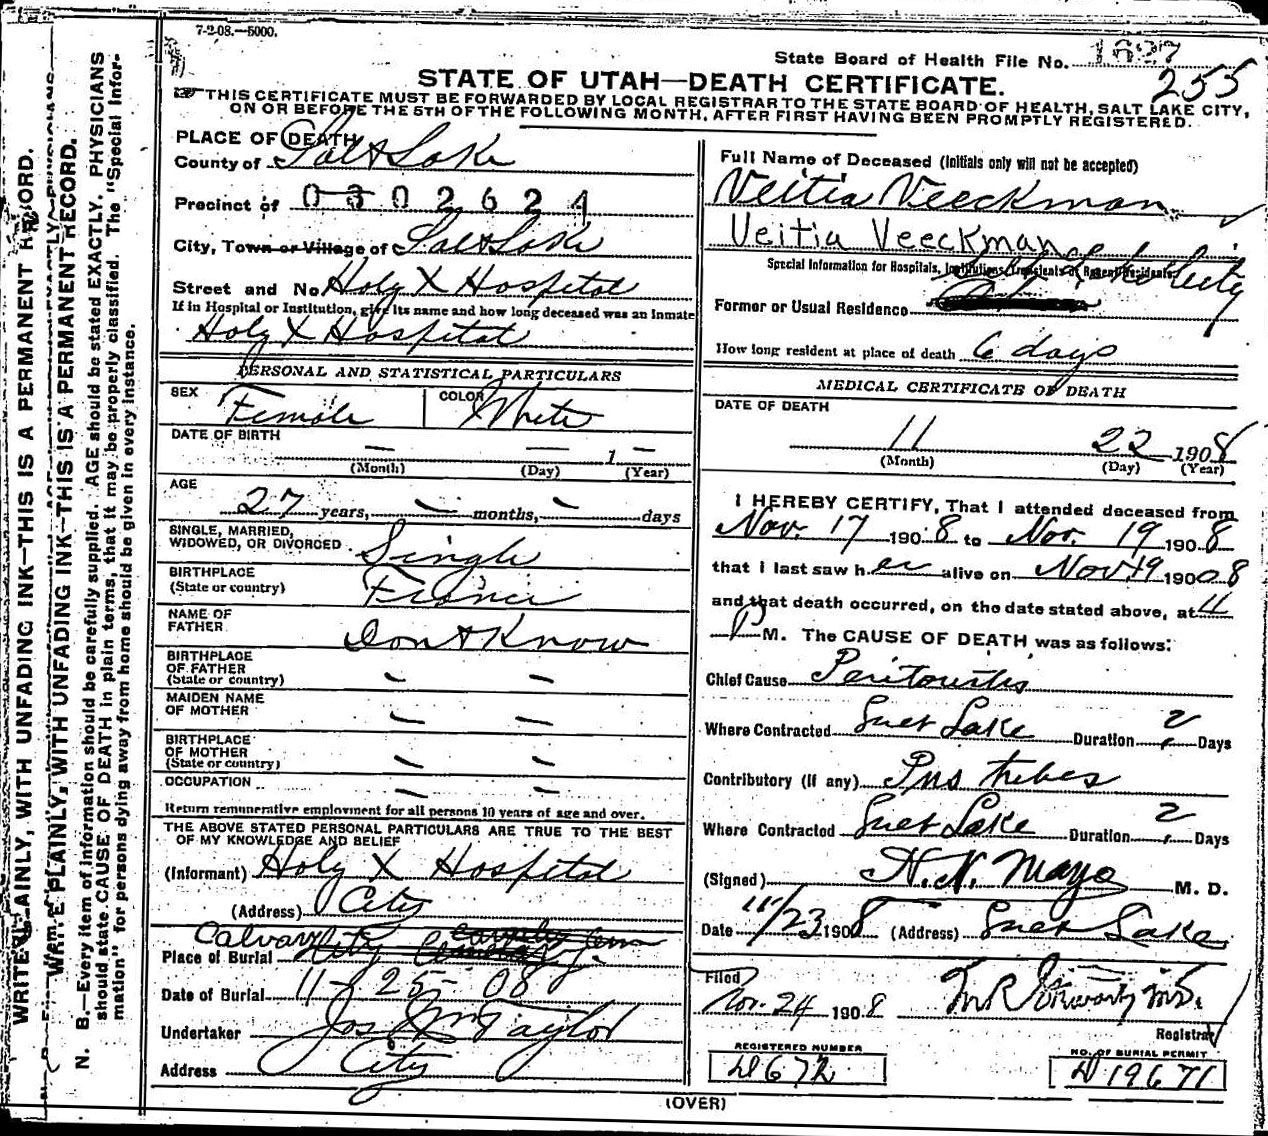 7-2-08.—5000.
State Board of Health File No. 1627
255
STATE OF UTAH—DEATH CERTIFICATE.
THIS CERTIFICATE MUST BE FORWARDED BY LOCAL REGISTRAR TO THE STATE BOARD OF HEALTH, SALT LAKE CITY,
ON OR BEFORE THE 5TH OF THE FOLLOWING MONTH, AFTER FIRST HAVING BEEN PROMPTLY REGISTERED.
WRITE PLAINLY, WITH UNFADING INK—THIS IS A PERMANENT RECORD.
WRITE PLAINLY, WITH UNFADING INK—THIS IS A PERMANENT RECORD.
N. B.—Every item of information should be carefully supplied. AGE should be stated EXACTLY. PHYSICIANS
should state CAUSE OF DEATH in plain terms, that it may be properly classified. The "Special Infor-
mation" for persons dying away from home should be given in every instance.
PLACE OF DEATH
County of Salt Lake
Precinct of 0302624
City, Town or Village of Salt Lake
Street and No. Holy X Hospital
If in Hospital or Institution, give its name and how long deceased was an Inmate
Holy X Hospital
PERSONAL AND STATISTICAL PARTICULARS
SEX Female COLOR White
DATE OF BIRTH — — 1 —
(Month) (Day) (Year)
AGE
27 years, — months, — days
SINGLE, MARRIED,
WIDOWED, OR DIVORCED Single
BIRTHPLACE
(State or country) France
NAME OF
FATHER Dont Know
BIRTHPLACE
OF FATHER
(State or country) — —
MAIDEN NAME
OF MOTHER — —
BIRTHPLACE
OF MOTHER
(State or country) — —
OCCUPATION — —
Return remunerative employment for all persons 10 years of age and over.
THE ABOVE STATED PERSONAL PARTICULARS ARE TRUE TO THE BEST
OF MY KNOWLEDGE AND BELIEF
(Informant) Holy X Hospital
(Address) City
Place of Burial Calvary City Cemetery
Date of Burial 11-25-08
Undertaker Jos Wm Taylor
Address City
Full Name of Deceased (Initials only will not be accepted)
Veitia Veeckman
Veitia Veeckman
Special Information for Hospitals, Institutions, Transients or Recent Residents
Former or Usual Residence Salt Lake City
How long resident at place of death 6 days
MEDICAL CERTIFICATE OF DEATH
DATE OF DEATH
11 22 1908
(Month) (Day) (Year)
I HEREBY CERTIFY, That I attended deceased from
Nov. 17 1908 to Nov. 19 1908
that I last saw her alive on Nov 19 1908
and that death occurred, on the date stated above, at 11
P M. The CAUSE OF DEATH was as follows:
Chief Cause Peritonitis
Where Contracted Salt Lake Duration 2 Days
Contributory (if any) Pus tubes
Where Contracted Salt Lake Duration 2 Days
(Signed) H. N. Mayo M. D.
Date 11/23 1908 (Address) Salt Lake
Filed
Nov. 24 1908
Registrar
REGISTERED NUMBER
D672
NO. OF BURIAL PERMIT
D19671
(OVER)